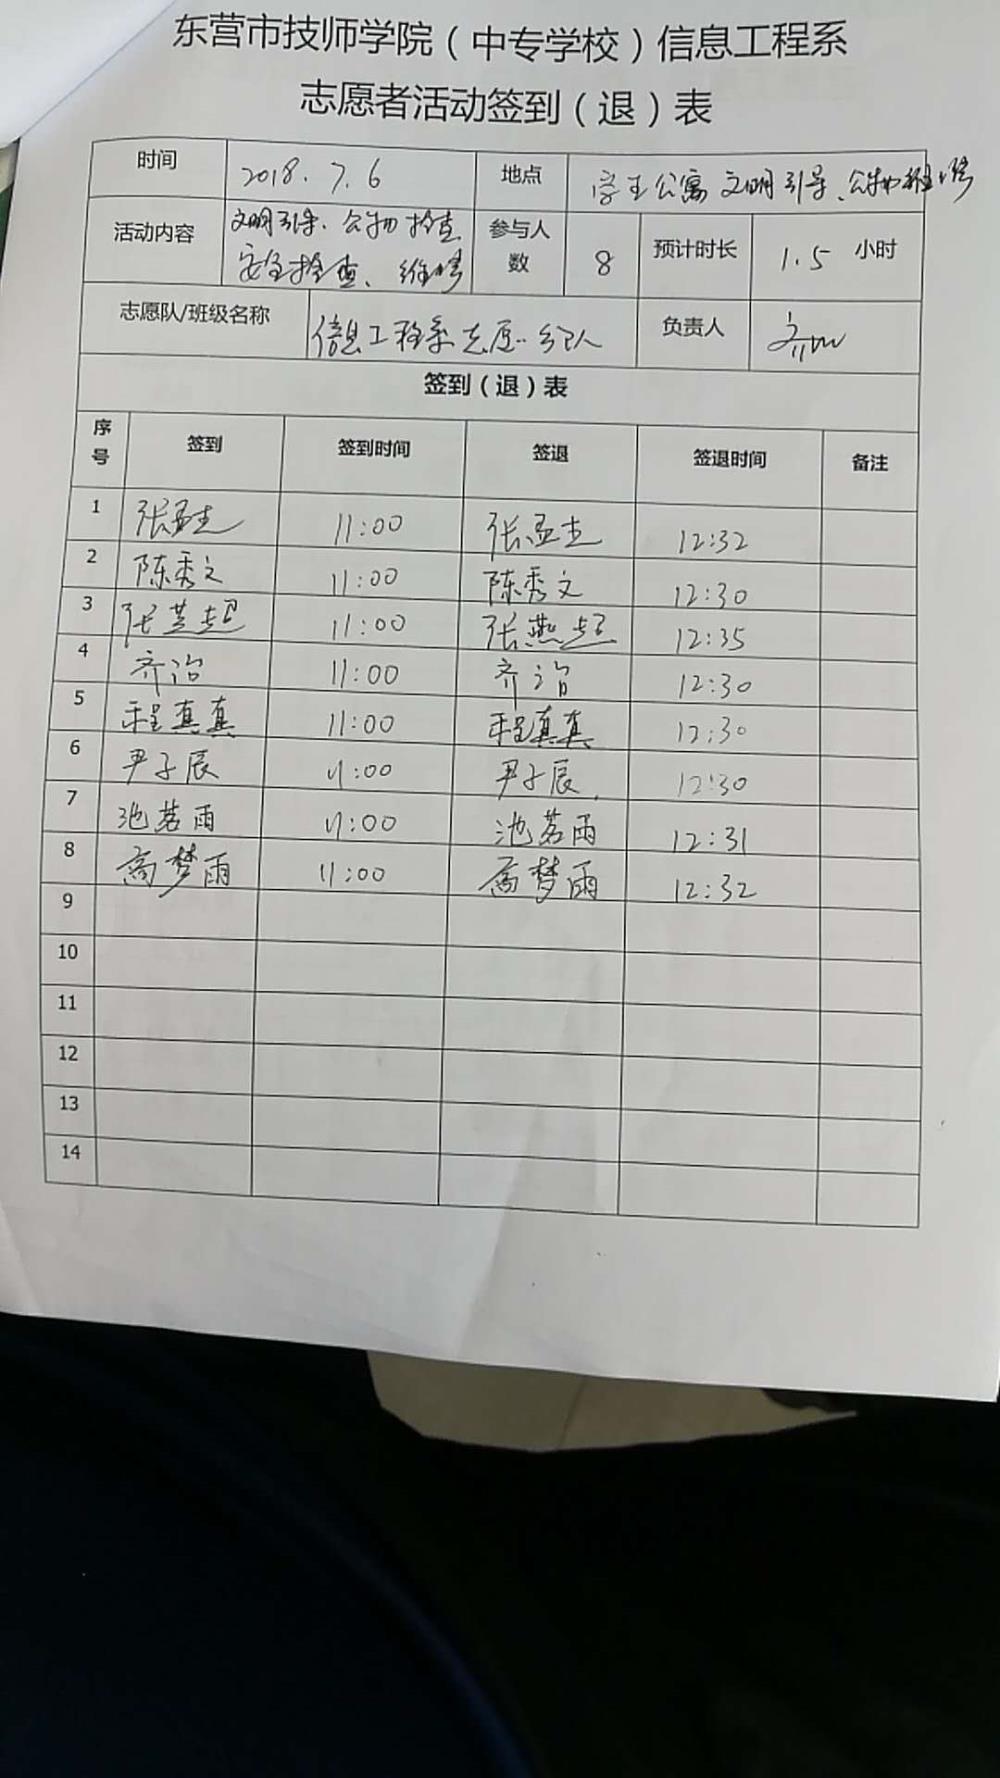 东营市技师学院（中专学校）信息工程系
志愿者活动签到（退）表
时间 2018.7.6 地点 学生公寓 文明引导、公物维修
活动内容 文明引导、公物检查 参与人数 8 预计时长 1.5 小时
安全检查、维修
志愿队/班级名称 信息工程系志愿 队 负责人
签到（退）表
序号 签到 签到时间 签退 签退时间 备注
1 张孟圭 11:00 张孟圭 12:32
2 陈秀文 11:00 陈秀文 12:30
3 张燕超 11:00 张燕超 12:35
4 齐治 11:00 齐治 12:30
5 程真真 11:00 程真真 12:30
6 尹子辰 11:00 尹子辰 12:30
7 池茗雨 11:00 池茗雨 12:31
8 高梦雨 11:00 高梦雨 12:32
9
10
11
12
13
14